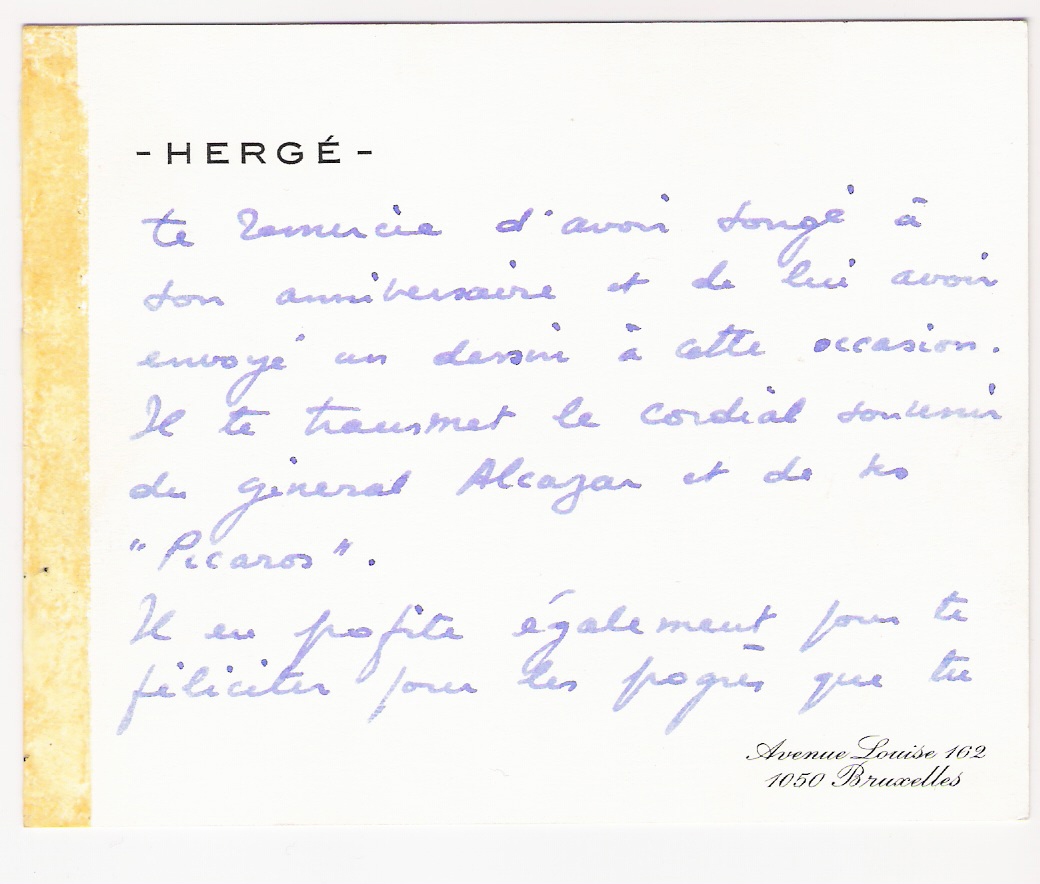 - HERGÉ -
te remercie d'avoir songé à
son anniversaire et de lui avoir
envoyé un dessin à cette occasion.
Il te transmet le cordial souvenir
du général Alcazar et de ses
"Picaros".
Il en profite également pour te
féliciter pour les progrès que tu
Avenue Louise 162
1050 Bruxelles